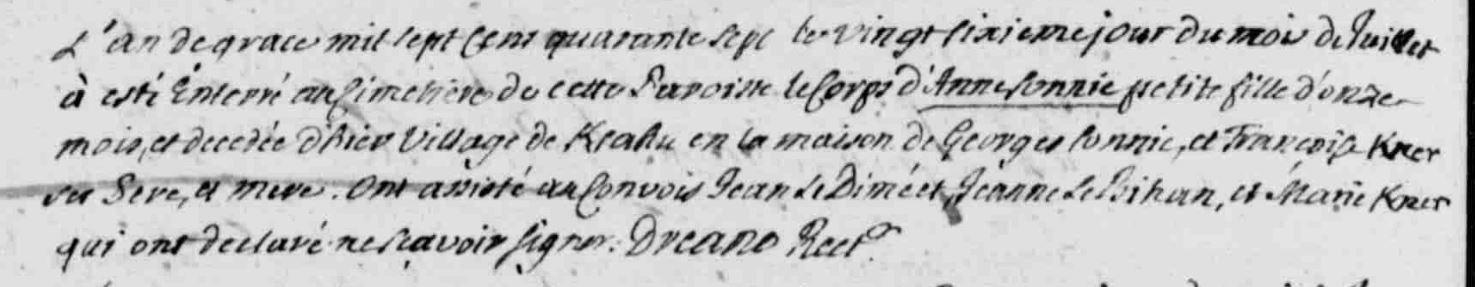 L'an de grace mil sept Cent quarante sept le vingt sixieme jour du mois de Juillet
à esté Enterré au Cimetiere de cette Paroisse le Corps d'Anne Connic petite fille d'onze
mois, et decedée d'hier Village de en la maison de Georges Connic, et Françoise Kner
ses Pere, et mere. Ont assisté au Convois Jean Le Dimét, Jeanne Le Bihan, et Marie Kner
qui ont declaré ne sçavoir signer. Dreano Rectr